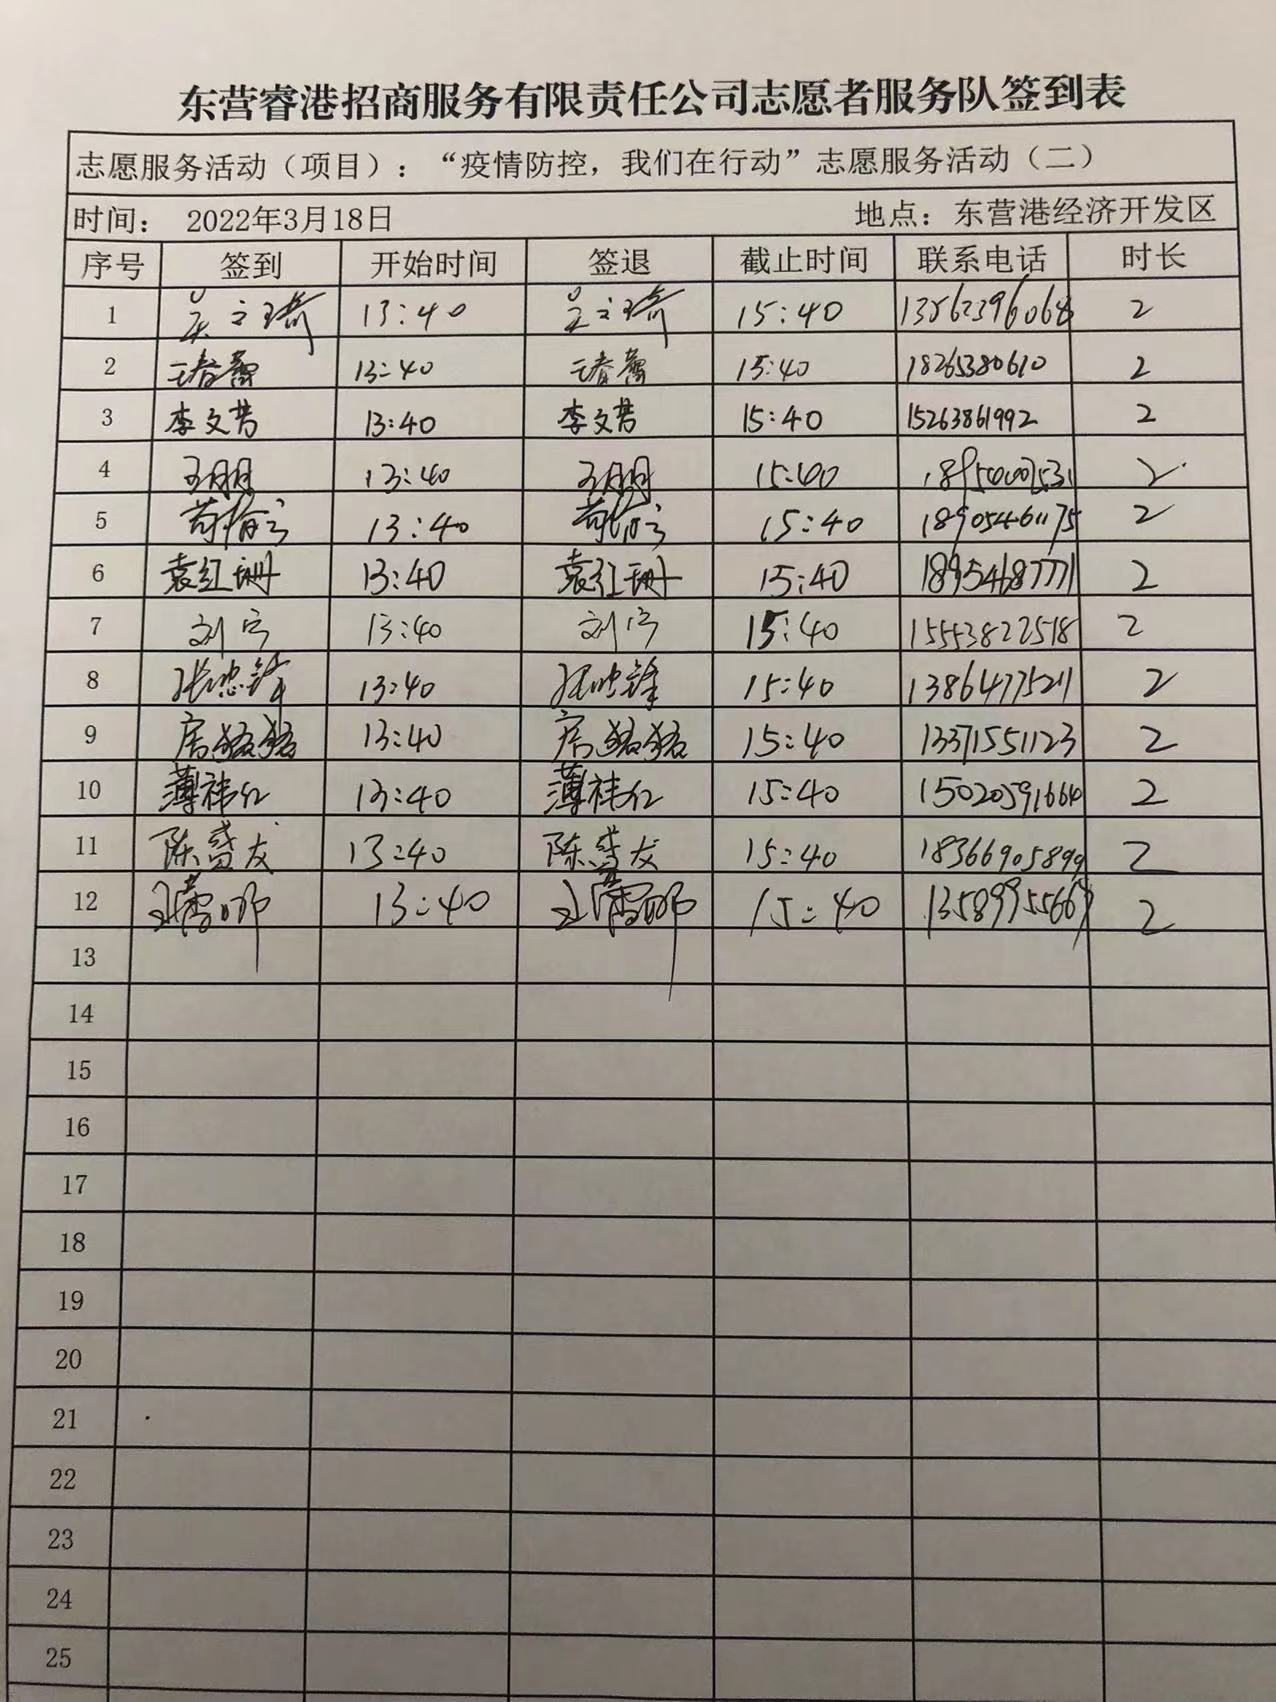 东营睿港招商服务有限责任公司志愿者服务队签到表
志愿服务活动（项目）：“疫情防控，我们在行动”志愿服务活动（二）
时间： 2022年3月18日 地点：东营港经济开发区
序号 签到 开始时间 签退 截止时间 联系电话 时长
1 13:40 15:40 2
2 王春蕾 13:40 王春蕾 15:40 18265380610 2
3 李文芳 13:40 李文芳 15:40 15263861992 2
4 王朋朋 13:40 王朋朋 15:40 2
5 13:40 15:40 18905461175 2
6 袁红珊 13:40 袁红珊 15:40 18954687771 2
7 刘宁 13:40 刘宁 15:40 15553822518 2
8 张忠锋 13:40 张忠锋 15:40 13864775211 2
9 房猛猛 13:40 房猛猛 15:40 13371551123 2
10 薄祎红 13:40 薄祎红 15:40 15020591664 2
11 陈盛友 13:40 陈盛友 15:40 18366905899 2
12 王蕾娜 13:40 王蕾娜 15:40 13589955667 2
13
14
15
16
17
18
19
20
21
22
23
24
25